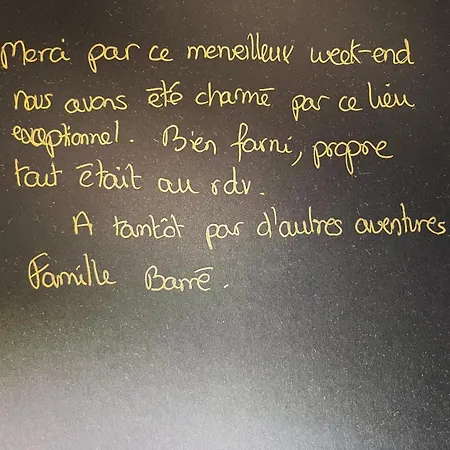 Merci par ce merveilleux week-end
nous avons été charmé par ce lieu
exceptionnel. Bien farni, propre
tout était au rdv.
A tantôt par d'autres aventures
Famille Barré.